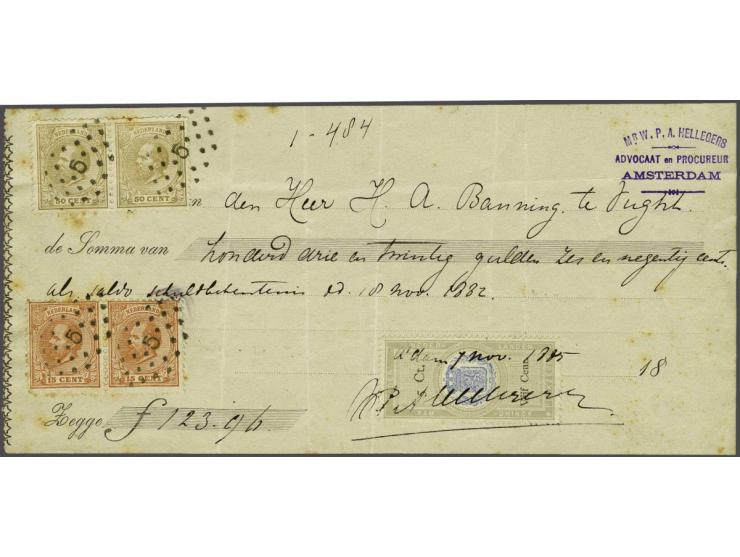 1-484
Mr W. P. A. HELLEGERS
ADVOCAAT en PROCUREUR
AMSTERDAM
NEDERLAND NEDERLAND
5 5
50 CENT 50 CENT
en den Heer H. A. Banning. te Vught.
de Somma van honderd drie en twintig gulden zes en negentig cent.
als saldo schuldbekentenis dd. 18 nov. 1882.
NEDERLAND NEDERLAND
5 5
15 CENT 15 CENT
A'dam nov. 1885 18
Ct. Cent
Zegge ƒ 123.96